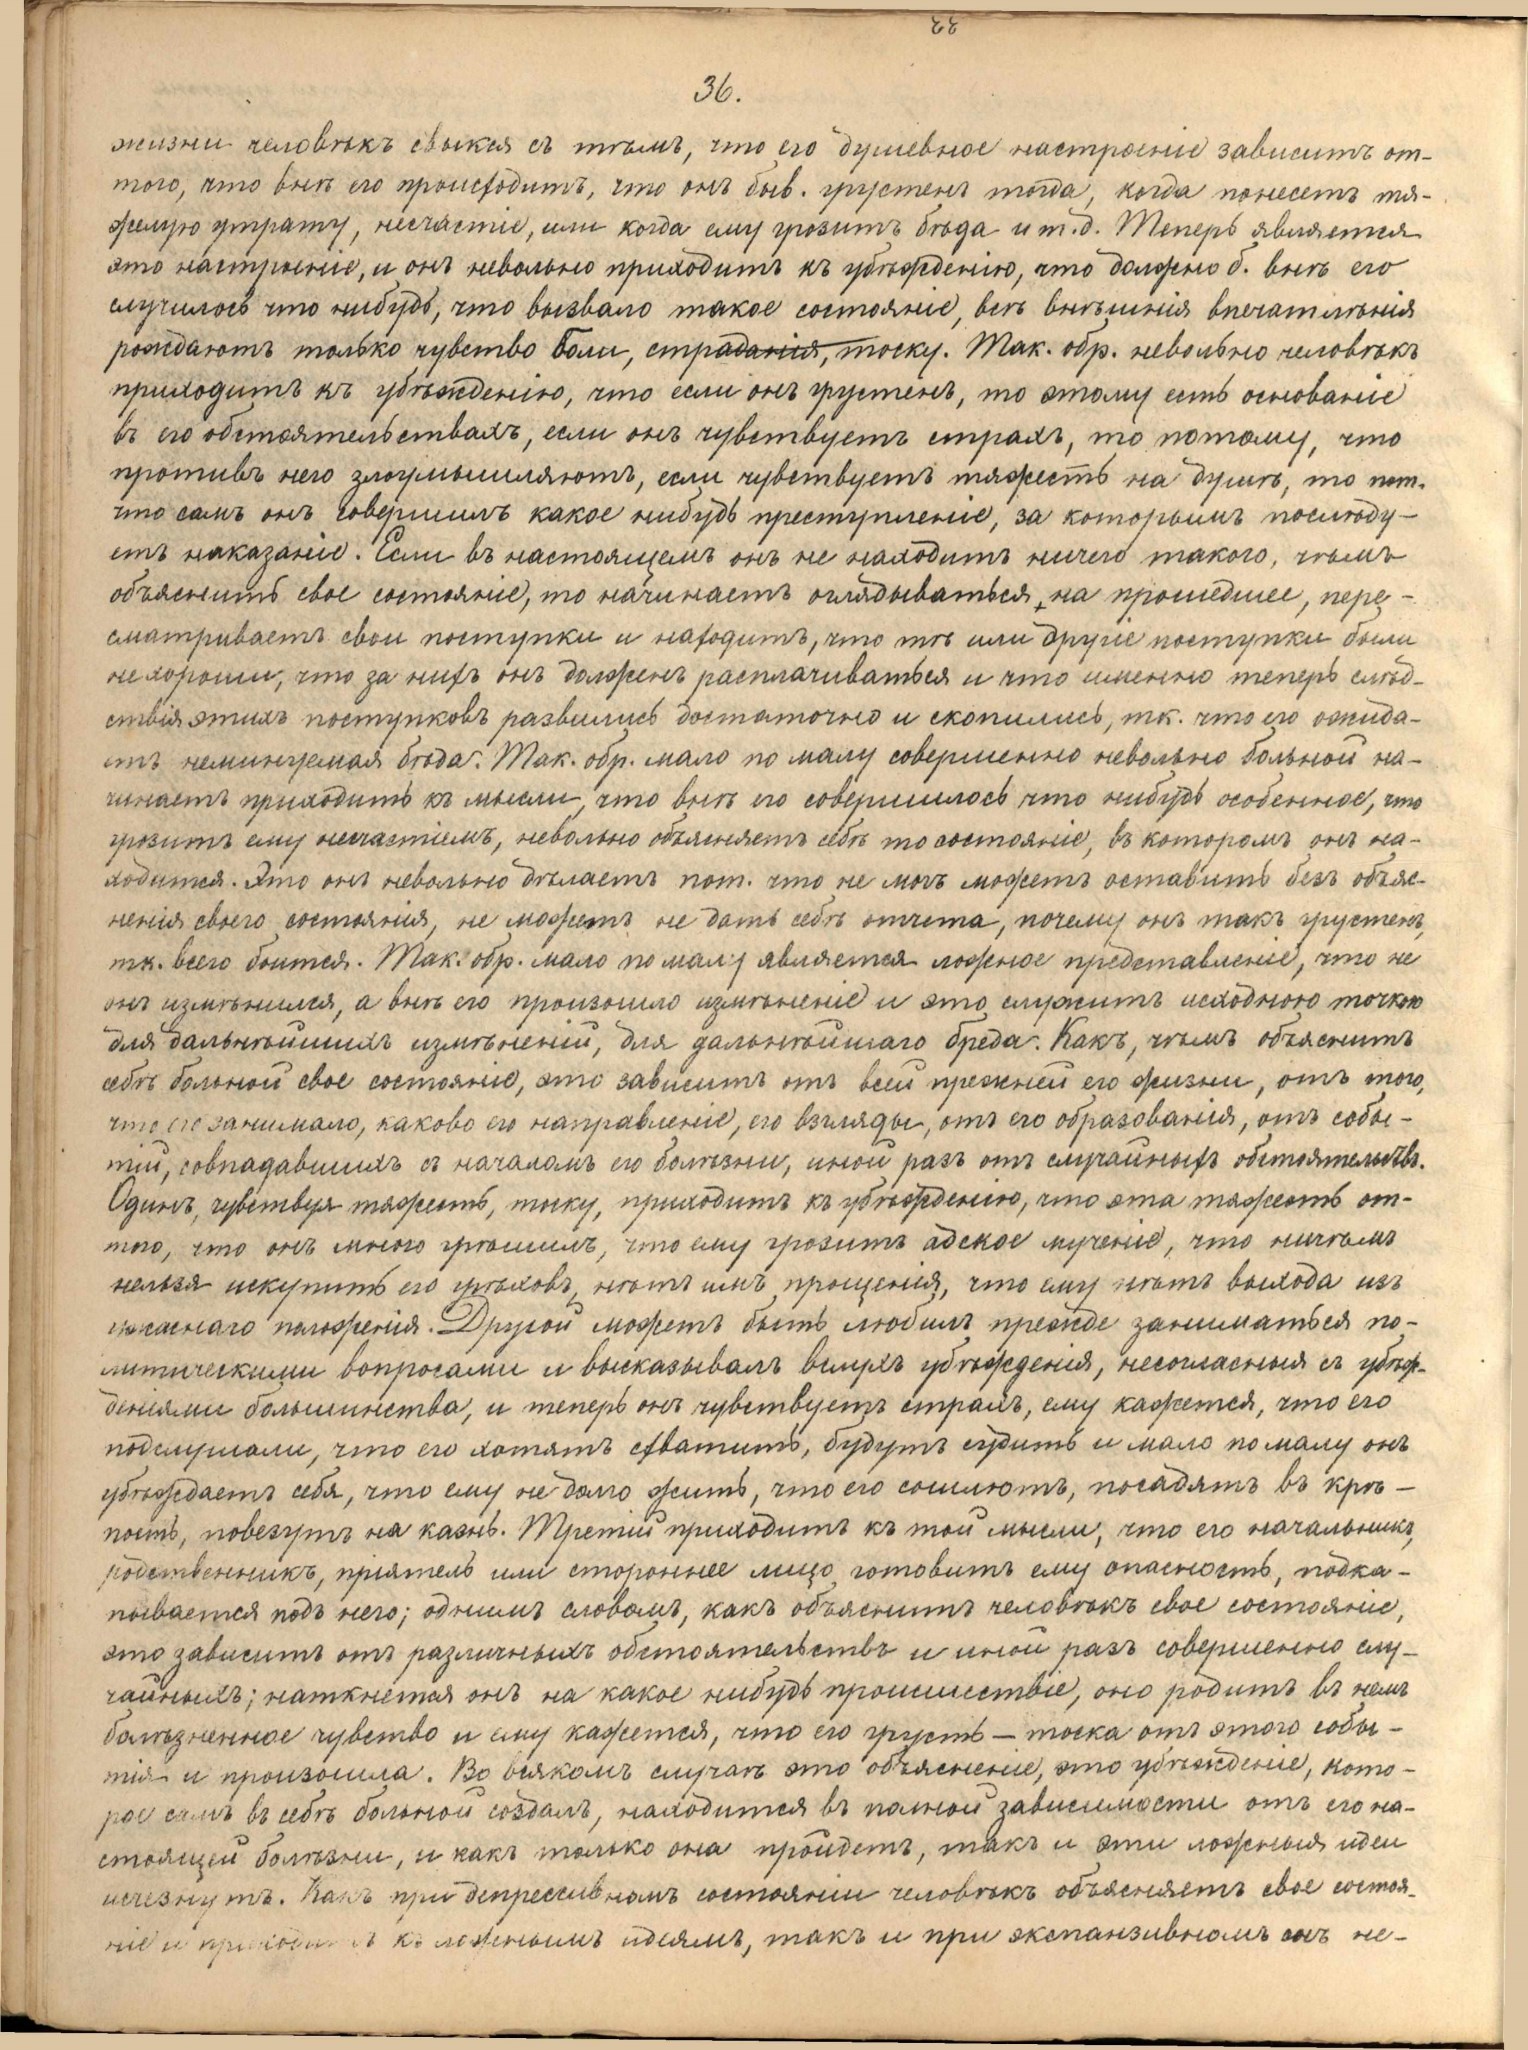 36.
жизни человѣкъ свыкся съ тѣмъ, что его душевное настроеніе зависитъ от-
того, что внѣ его происходитъ, что онъ быв. грустенъ тогда, когда понесетъ тя-
желую утрату, несчастіе, или когда ему грозитъ бѣда и т.д. Теперь является
это настроеніе, и онъ невольно приходитъ къ убѣжденію, что должно б. внѣ его
случилось что нибудь, что вызвало такое состояніе, всѣ внѣшнія впечатлѣнія
рождаютъ только чувство боли, страданія, тоску. Так. обр. невольно человѣкъ
приходитъ къ убѣжденію, что если онъ грустенъ, то этому есть основаніе
въ его обстоятельствахъ, если онъ чувствуетъ страхъ, то потому, что
противъ него злоумышляютъ, если чувствуетъ тяжесть на душѣ, то пот.
что самъ онъ совершилъ какое нибудь преступленіе, за которымъ послѣду-
етъ наказаніе. Если въ настоящемъ онъ не находитъ ничего такого, чѣмъ
объяснить свое состояніе, то начинаетъ оглядываться на прошедшее, пере-
сматриваетъ свои поступки и находитъ, что тѣ или другіе поступки были
не хороши, что за нихъ онъ долженъ расплачиваться и что именно теперь слѣд-
ствія этихъ поступковъ развились достаточно и скопились, тк. что его ожида-
етъ неминуемая бѣда. Так. обр. мало по малу совершенно невольно больной на-
чинаетъ приходить къ мысли, что внѣ его совершилось что нибудь особенное, что
грозитъ ему несчастіемъ, невольно объясняетъ себѣ то состояніе, въ которомъ онъ на-
ходится. Это онъ невольно дѣлаетъ пот. что не могъ можетъ оставить безъ объяс-
ненія своего состоянія, не можетъ не дать себѣ отчета, почему онъ такъ грустенъ,
тк. всего боится. Так. обр. мало по малу является ложное представленіе, что не
онъ измѣнился, а внѣ его произошло измѣненіе и это служитъ исходною точкою
для дальнѣйшихъ измѣненій, для дальнѣйшаго бреда. Какъ, чѣмъ объяснитъ
себѣ больной свое состояніе, это зависитъ отъ всей прежней его жизни, отъ того,
что его занимало, каково его направленіе, его взгляды, отъ его образованія, отъ собы-
тій, совпадавшихъ съ началомъ его болѣзни, иной разъ отъ случайныхъ обстоятельствъ.
Одинъ, чувствуя тяжесть, тоску, приходитъ къ убѣжденію, что эта тяжесть от-
того, что онъ много грѣшилъ, что ему грозитъ адское мученіе, что ничѣмъ
нельзя искупить его грѣховъ, нѣтъ имъ прощенія, что ему нѣтъ выхода изъ
ужаснаго положенія. Другой можетъ быть любилъ прежде заниматься по-
литическими вопросами и высказывалъ вслухъ убѣжденія, несогласныя съ убѣж-
деніями большинства, и теперь онъ чувствуетъ страхъ, ему кажется, что его
подслушали, что его хотятъ схватить, будутъ судить и мало по малу онъ
убѣждаетъ себя, что ему не долго жить, что его сошлютъ, посадятъ въ крѣ-
пость, повезутъ на казнь. Третій приходитъ къ той мысли, что его начальникъ,
родственникъ, пріятель или стороннее лицо готовитъ ему опасность, подка-
пывается подъ него; однимъ словомъ, какъ объяснитъ человѣкъ свое состояніе,
это зависитъ отъ различныхъ обстоятельствъ и иной разъ совершенно слу-
чайныхъ; наткнется онъ на какое нибудь происшествіе, оно родитъ въ немъ
болѣзненное чувство и ему кажется, что его грусть - тоска отъ этого собы-
тія и произошла. Во всякомъ случаѣ это объясненіе, это убѣжденіе, кото-
рое самъ въ себѣ больной создалъ, находится въ полной зависимости отъ его на-
стоящей болѣзни, и какъ только она пройдетъ, такъ и эти ложныя идеи
исчезнутъ. Какъ при депрессивномъ состояніи человѣкъ объясняетъ свое состоя-
ніе и приходитъ къ ложнымъ идеямъ, такъ и при экспанзивномъ онъ не-